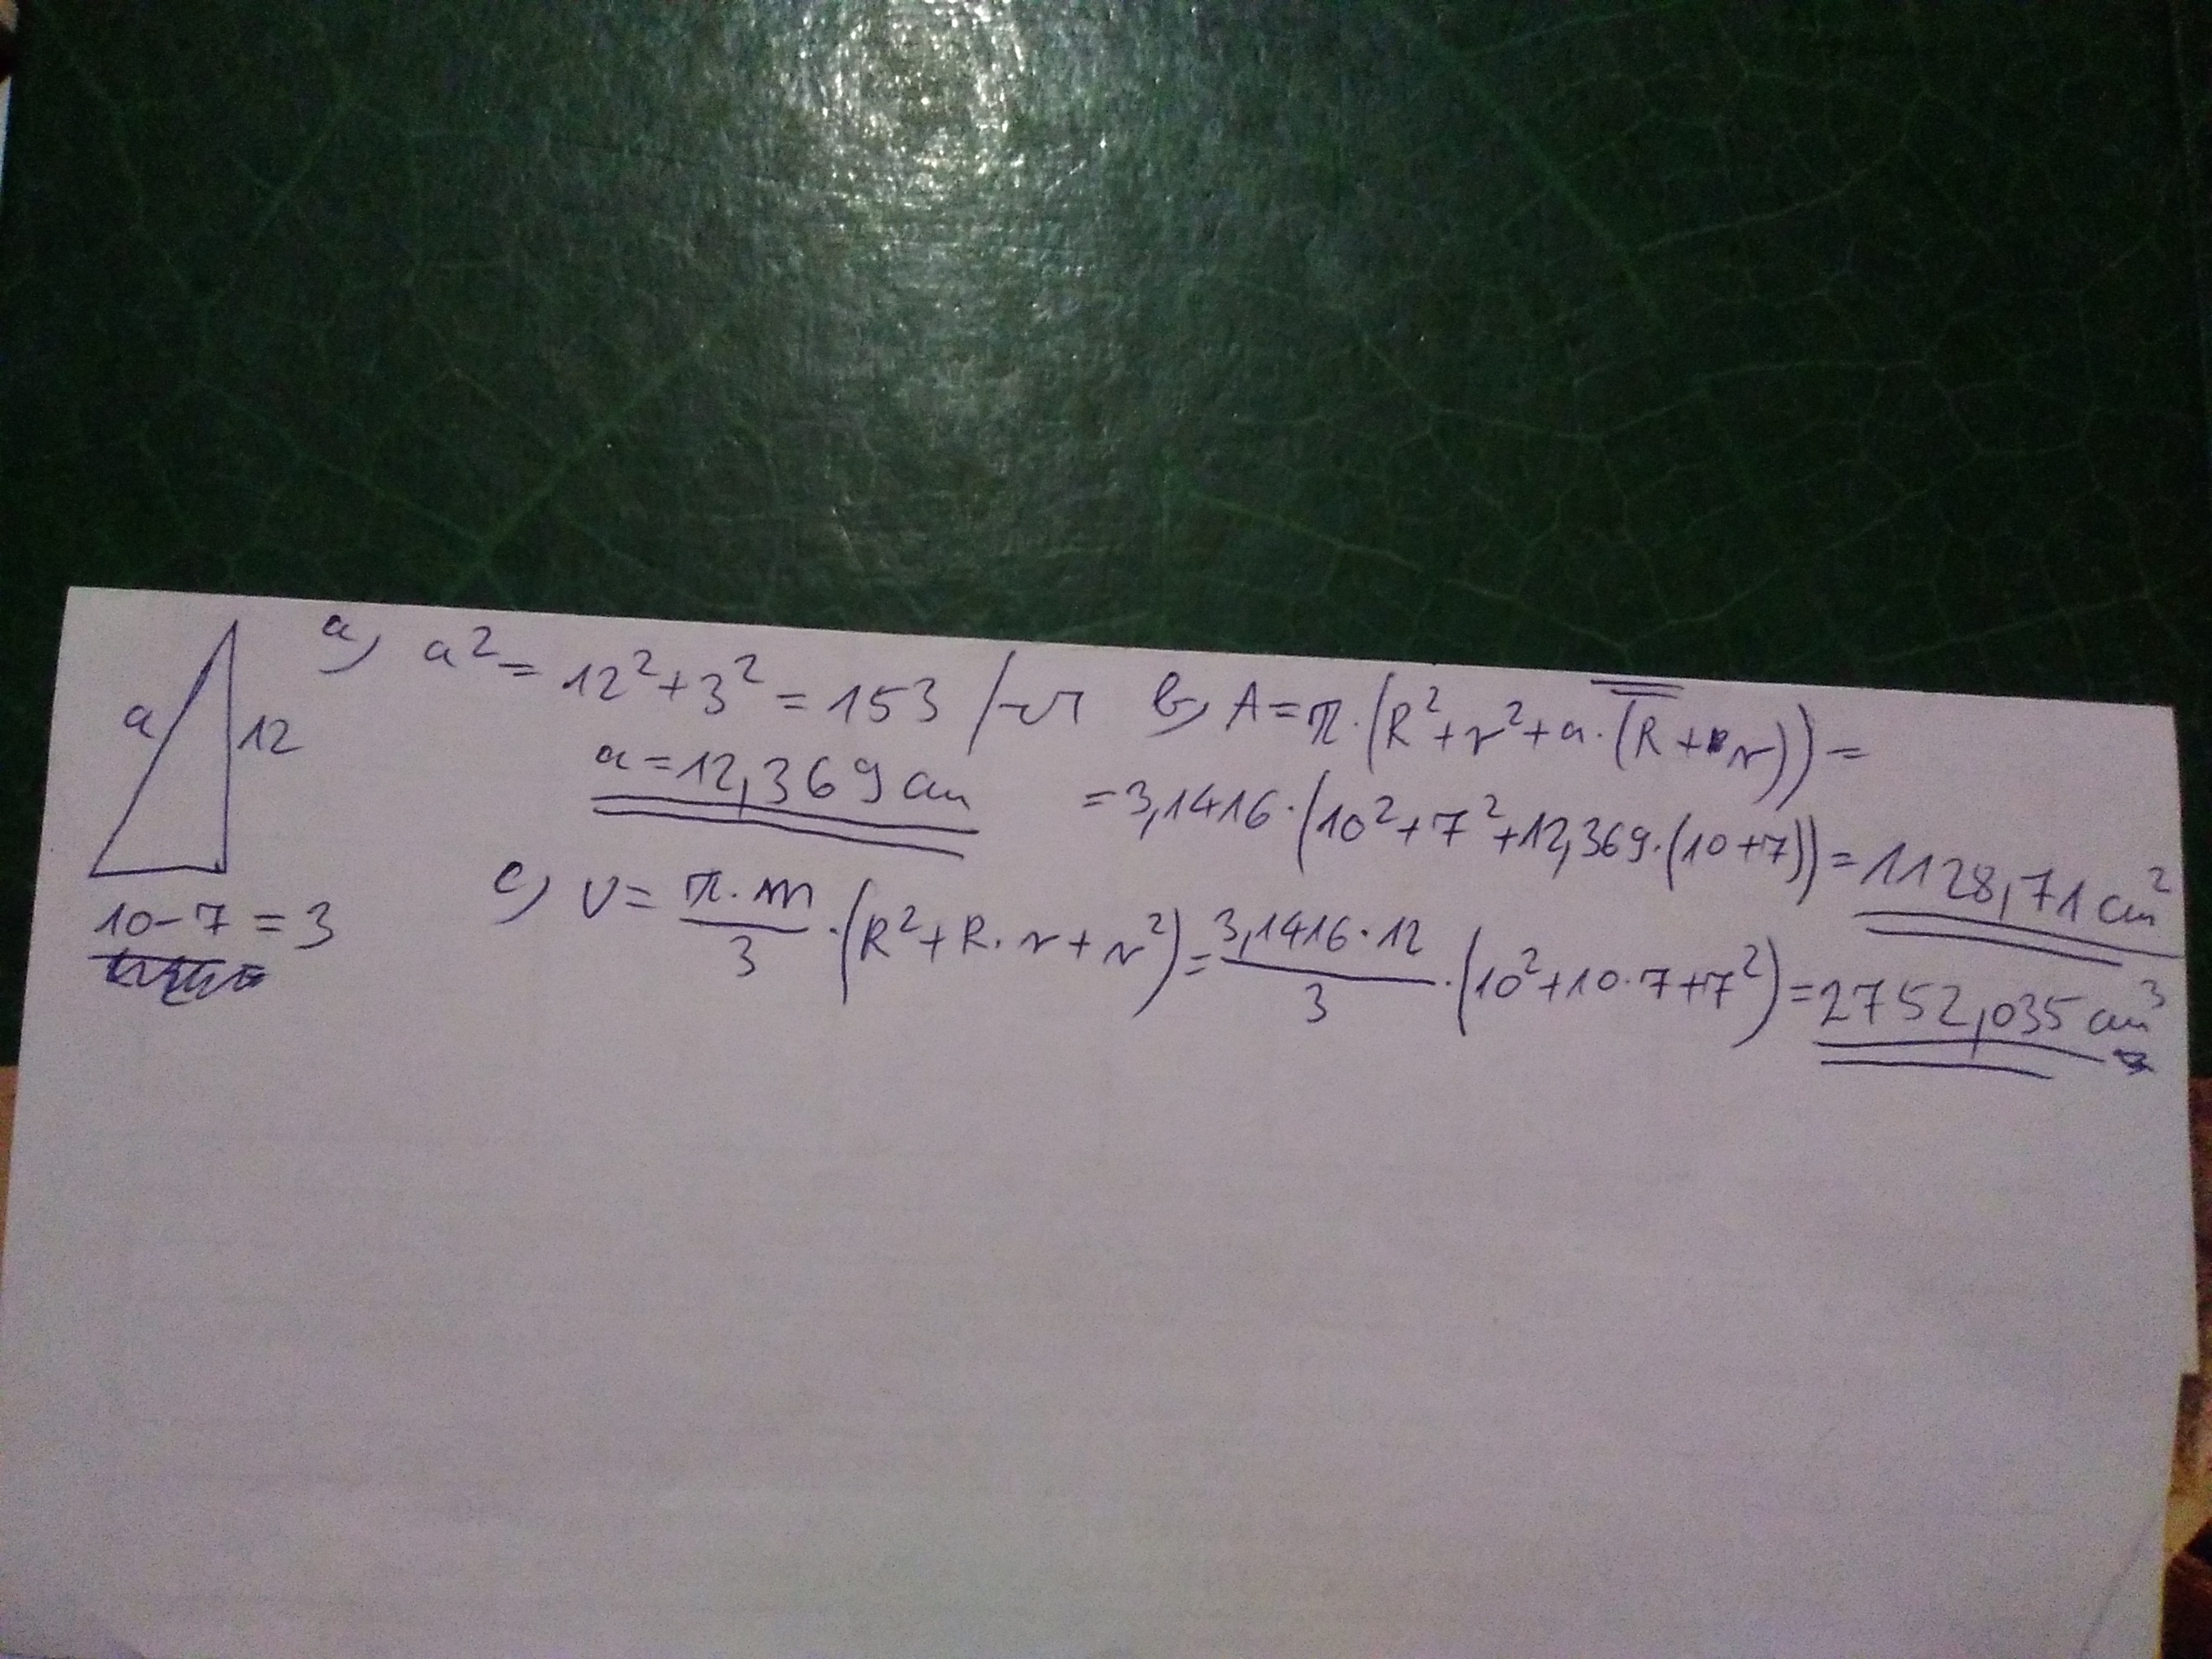 a
12
10-7=3
a, a²=12²+3²=153 /√
a=12,369 cm
b, A=π·(R²+r²+a·(R+r))=
=3,1416·(10²+7²+12,369·(10+7))=1128,71 cm²
c, V=π·m/3·(R²+R·r+r²)=3,1416·12/3·(10²+10·7+7²)=2752,035 cm³